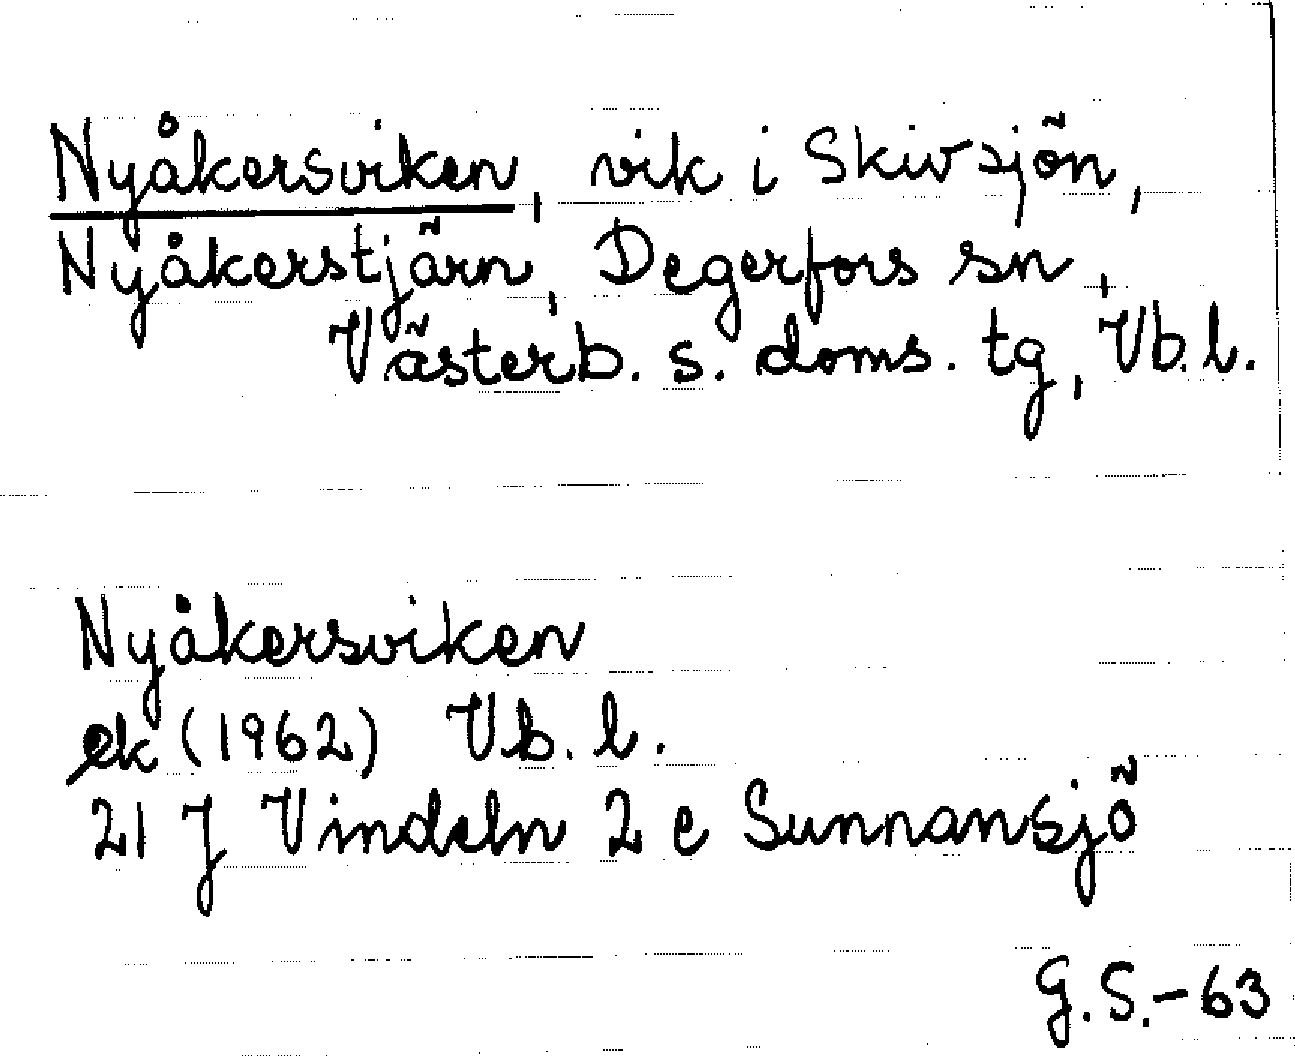 Nyåkersviken, vik i Skivsjön,
Nyåkerstjärn, Degerfors sn,
Västerb. s. doms. tg, Vb. l.
Nyåkersviken
ek (1962) Vb. l.
21 J Vindeln 2 c Sunnansjö
G.S.-63